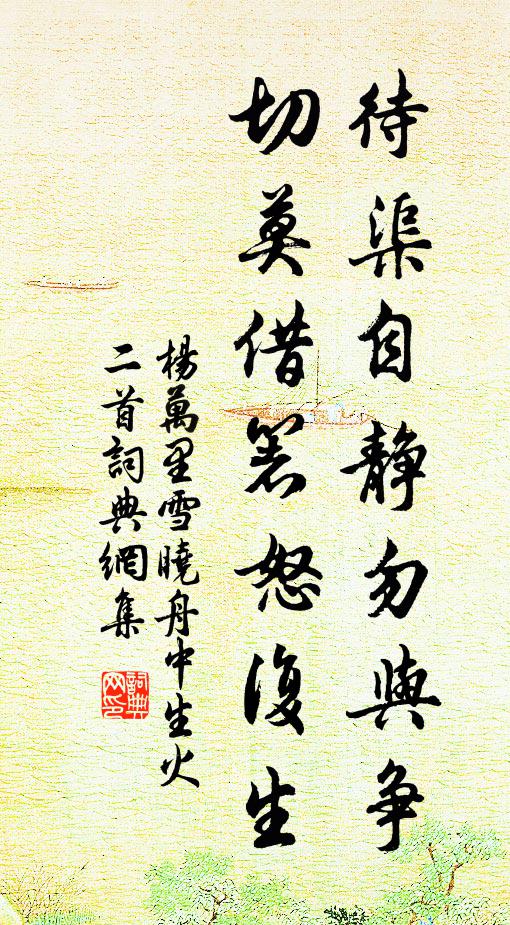 待渠自静勿與争
切莫借箸怒復生
楊萬里雪曉舟中生火
二首詞典網集
詞典
网印